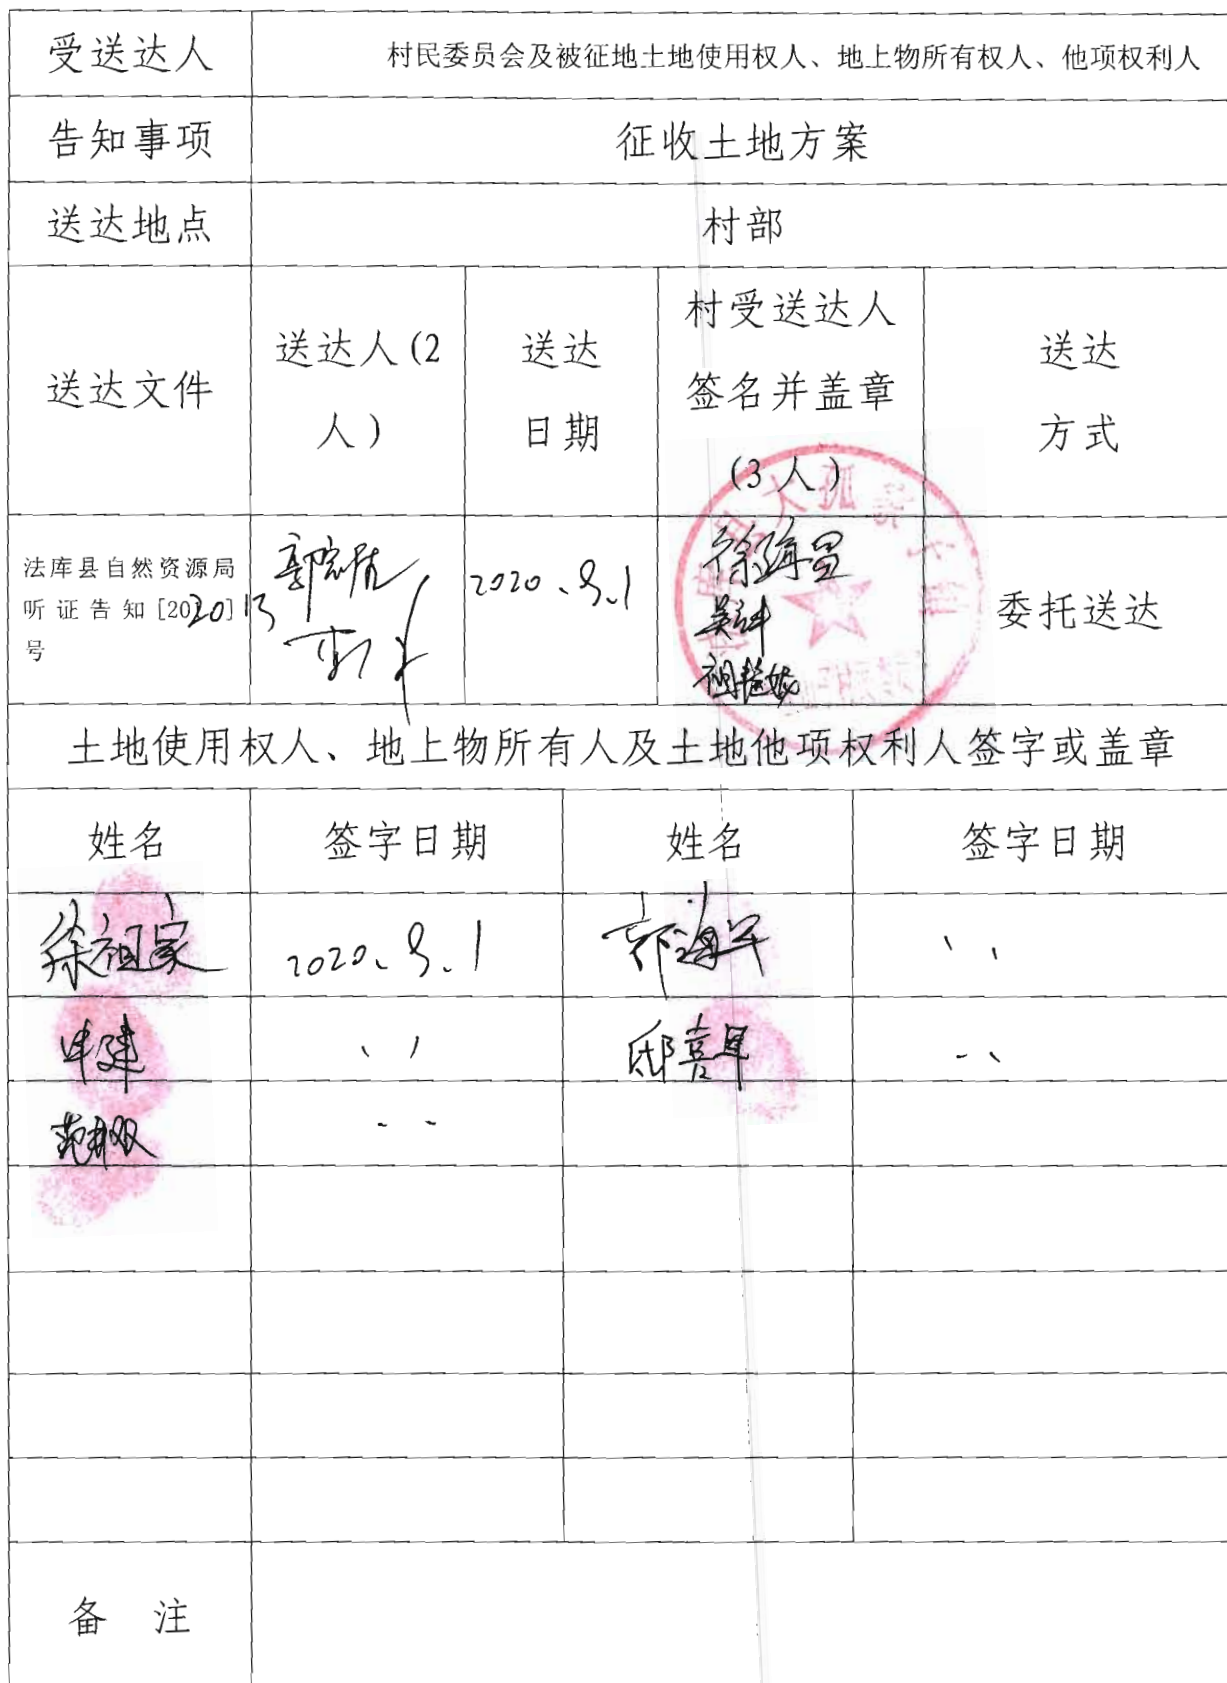 受送达人
村民委员会及被征地土地使用权人、地上物所有权人、他项权利人
告知事项
征收土地方案
送达地点
村部
送达文件
送达人(2
人)
送达
日期
村受送达人
签名并盖章
(3人)
送达
方式
法库县自然资源局
听证告知[2020]13
号
2020、9、1
徐海昌
委托送达
土地使用权人、地上物所有人及土地他项权利人签字或盖章
姓名
签字日期
姓名
签字日期
徐祖家
2020、9、1
郭海军
申建
邸喜军
备 注